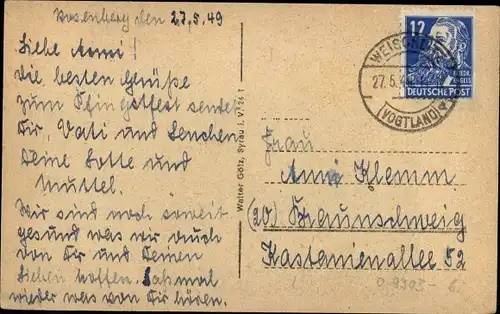 Rosenberg den 27.5.49
Liebe Anni!
Die besten Grüße
zum Pfingstfest sendet
Dir, Vati und Lenchen
Deine Lotte und
Muttel.
Wir sind noch soweit
gesund was wir auch
von Dir und Deinen
Lieben hoffen. Laß mal
wieder was von Dir hören.
Walter Götz, Syrau i. V.
12
DEUTSCHE POST
27.5.
(VOGTLAND)
Frau
Anni Klemm
(20) Braunschweig
Kastanienallee 52